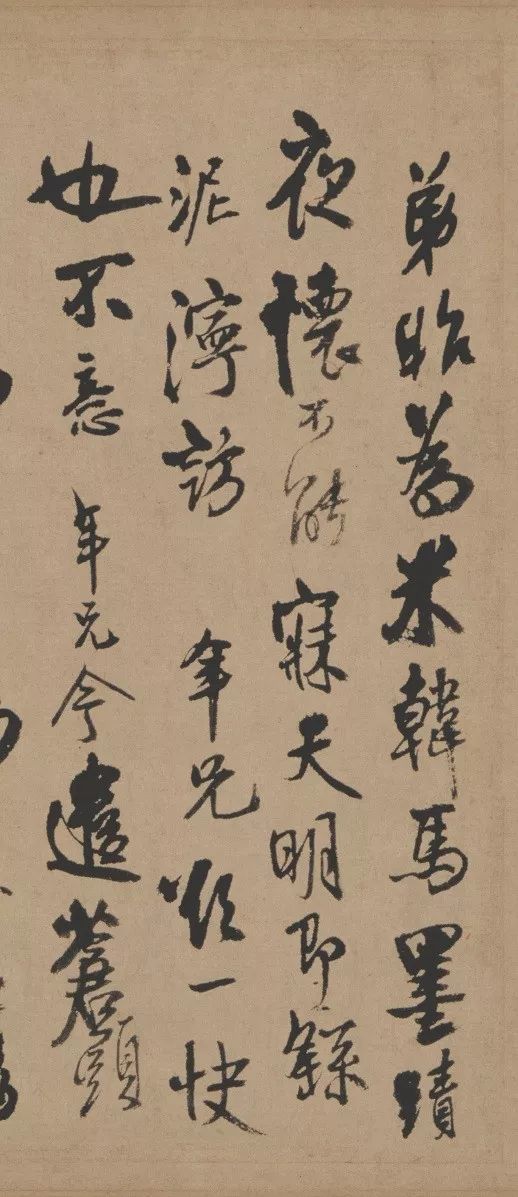 弟昨為米韓馬墨蹟
夜懷不能寐天明即繇
泥濘訪 年兄欲一快
也不意 年兄今遣蒼頭